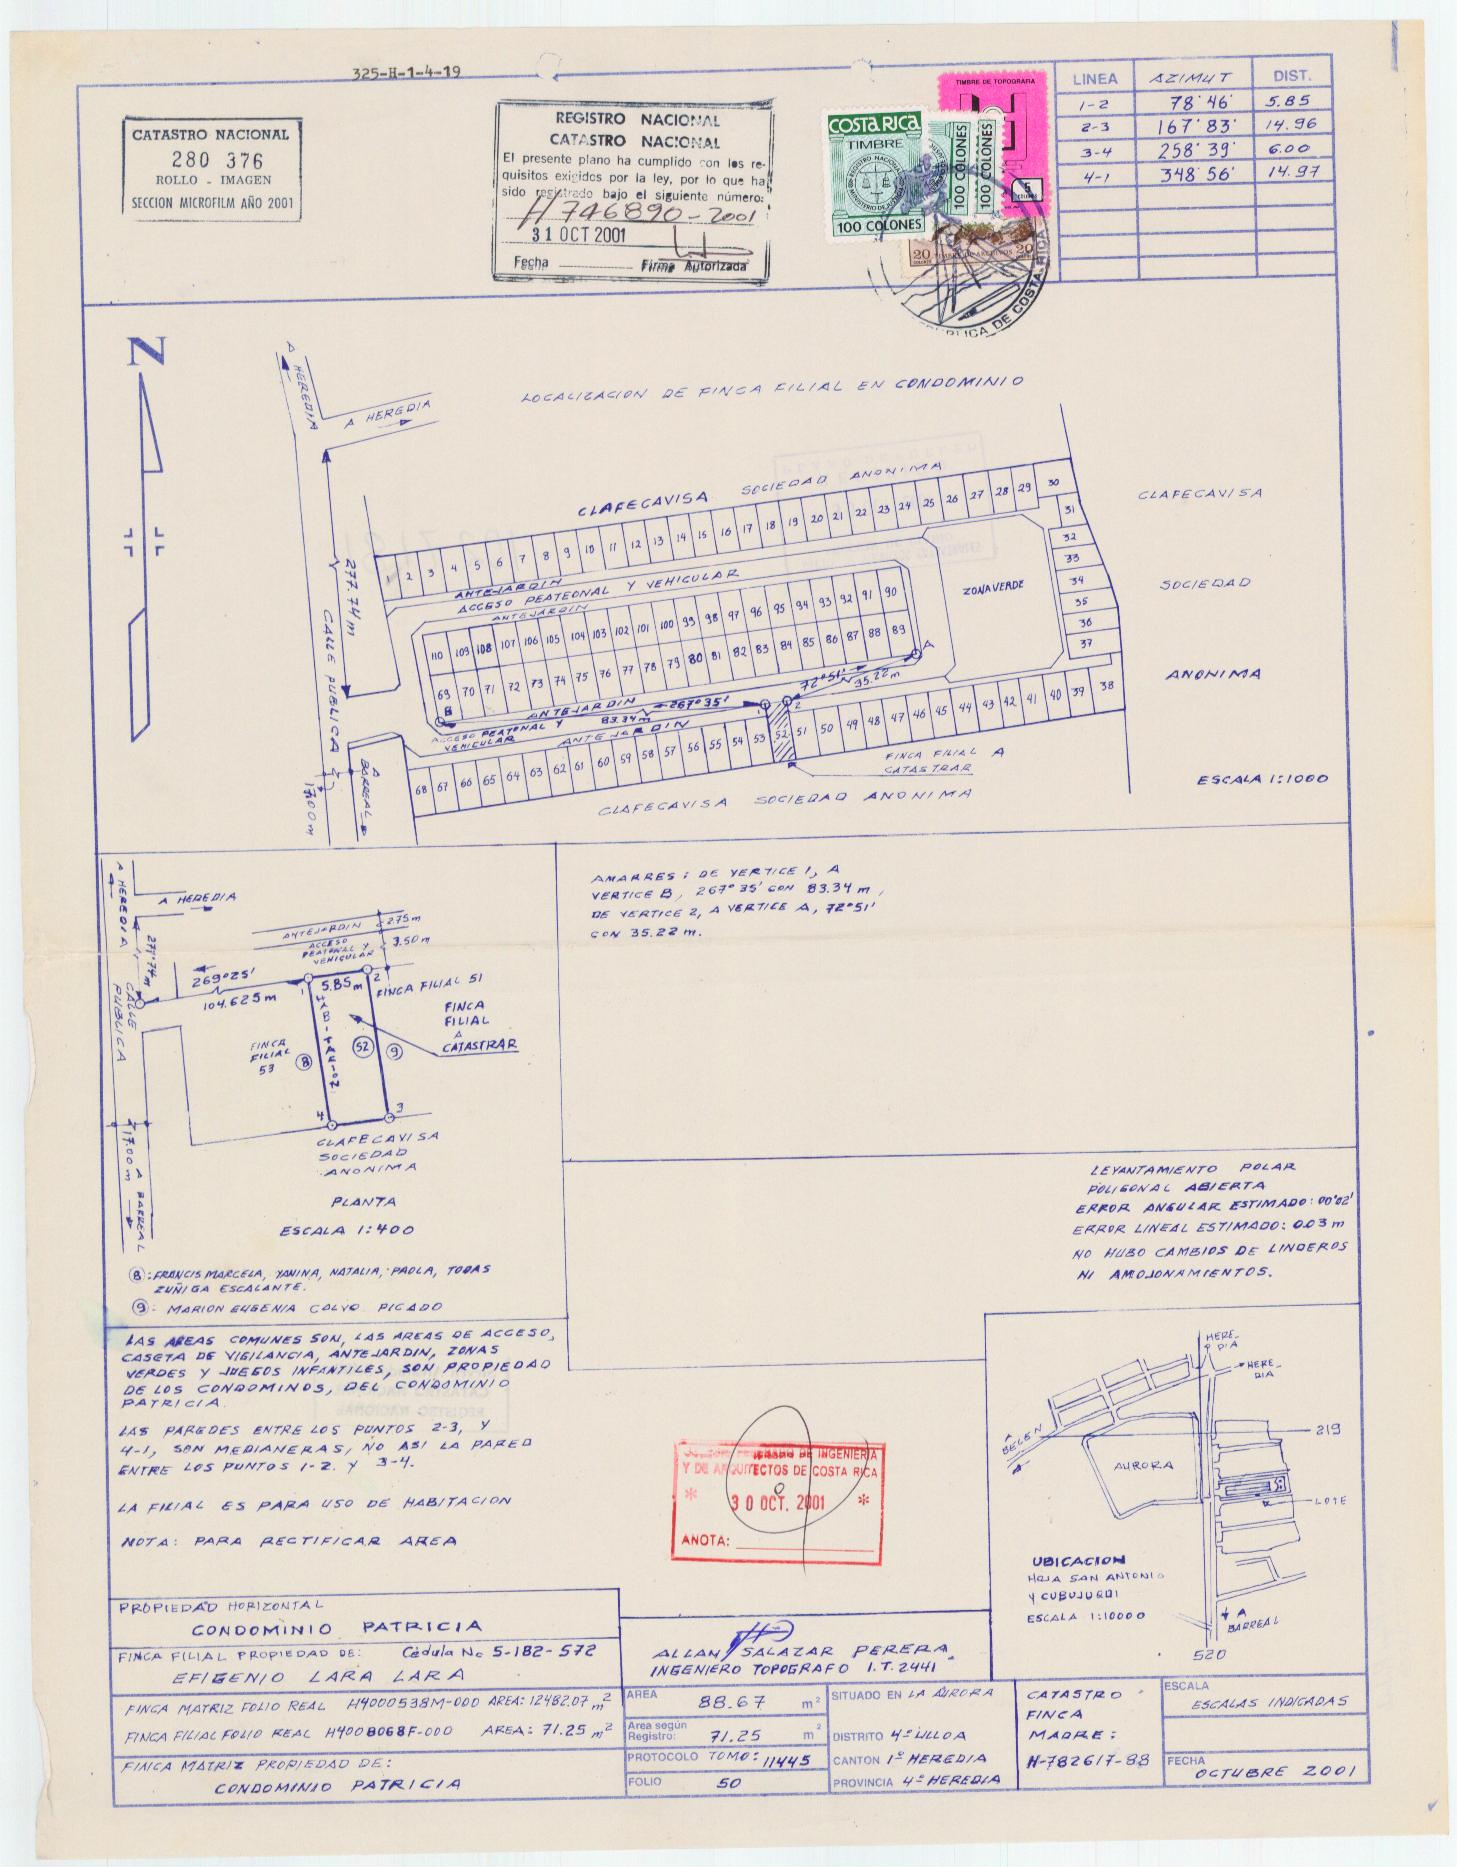 325-H-1-4-19
CATASTRO NACIONAL
280 376
ROLLO - IMAGEN
SECCION MICROFILM AÑO 2001
REGISTRO NACIONAL
CATASTRO NACIONAL
El presente plano ha cumplido con los re-
quisitos exigidos por la ley, por lo que ha
sido registrado bajo el siguiente número:
H 746890-2001
31 OCT 2001
Fecha
Firma Autorizada
COSTA RICA
TIMBRE
100 COLONES
100 COLONES
100 COLONES
TIMBRE DE TOPOGRAFIA
5
20 TIMBRE DE ARCHIVOS 20
REPUBLICA DE COSTA RICA
LINEA AZIMUT DIST.
1-2 78°46' 5.85
2-3 167°83' 14.96
3-4 258°39' 6.00
4-1 348°56' 14.97
N
A HEREDIA
A HEREDIA
LOCALIZACION DE FINCA FILIAL EN CONDOMINIO
CLAFECAVISA SOCIEDAD ANONIMA
1 2 3 4 5 6 7 8 9 10 11 12 13 14 15 16 17 18 19 20 21 22 23 24 25 26 27 28 29 30
31
32
33
34
35
36
37
CLAFECAVISA
SOCIEDAD
ANONIMA
277.74 m
CALLE PUBLICA
17.00 m
A BARREAL
ANTEJARDIN
ACCESO PEATEONAL Y VEHICULAR
ANTEJARDIN
110 109 108 107 106 105 104 103 102 101 100 99 98 97 96 95 94 93 92 91 90
69 70 71 72 73 74 75 76 77 78 79 80 81 82 83 84 85 86 87 88 89
ZONA VERDE
B
A
ANTEJARDIN
267°35'
83.34 m
72°51'
35.22 m
1 2
ACCESO PEATONAL Y
VEHICULAR
ANTEJARDIN
68 67 66 65 64 63 62 61 60 59 58 57 56 55 54 53 52 51 50 49 48 47 46 45 44 43 42 41 40 39 38
FINCA FILIAL A
CATASTRAR
CLAFECAVISA SOCIEDAD ANONIMA
ESCALA 1:1000
A HEREDIA
A HEREDIA
277.74 m
CALLE PUBLICA
17.00 m
A BARREAL
ANTEJARDIN
2.75 m
ACCESO
PEATONAL Y
VEHICULAR
3.50 m
269°25'
104.625 m
1
5.85 m
2
FINCA FILIAL 51
FINCA
FILIAL
A
CATASTRAR
FINCA
FILIAL
53
8
52
9
4
3
CLAFECAVISA
SOCIEDAD
ANONIMA
PLANTA
ESCALA 1:400
8: FRANCIS MARCELA, YANINA, NATALIA, PAOLA, TODAS
ZUÑIGA ESCALANTE.
9: MARION EUGENIA CALVO PICADO
AMARRES: DE VERTICE 1, A
VERTICE B, 267°35' CON 83.34 m,
DE VERTICE 2, A VERTICE A, 72°51'
CON 35.22 m.
LEVANTAMIENTO POLAR
POLIGONAL ABIERTA
ERROR ANGULAR ESTIMADO: 00°02'
ERROR LINEAL ESTIMADO: 0.03 m
NO HUBO CAMBIOS DE LINDEROS
NI AMOJONAMIENTOS.
LAS AREAS COMUNES SON, LAS AREAS DE ACCESO,
CASETA DE VIGILANCIA, ANTEJARDIN, ZONAS
VERDES Y JUEGOS INFANTILES, SON PROPIEDAD
DE LOS CONDOMINOS, DEL CONDOMINIO
PATRICIA.
LAS PAREDES ENTRE LOS PUNTOS 2-3, Y
4-1, SON MEDIANERAS, NO ASI LA PARED
ENTRE LOS PUNTOS 1-2. Y 3-4.
LA FILIAL ES PARA USO DE HABITACION
NOTA: PARA RECTIFICAR AREA
DE INGENIERIA
Y DE ARQUITECTOS DE COSTA RICA
* 30 OCT. 2001 *
ANOTA:
HERE-
DIA
HERE-
DIA
A
BELEN
AURORA
219
LOTE
UBICACION
HOJA SAN ANTONIO
Y CUBUJUQUI
ESCALA 1:10000
A
BARREAL
520
PROPIEDAD HORIZONTAL
CONDOMINIO PATRICIA
FINCA FILIAL PROPIEDAD DE: Cédula No 5-182-572
EFIGENIO LARA LARA
FINCA MATRIZ FOLIO REAL H4000538M-000 AREA: 12482.07 m2
FINCA FILIAL FOLIO REAL H4008068F-000 AREA: 71.25 m2
FINCA MATRIZ PROPIEDAD DE:
CONDOMINIO PATRICIA
ALLAN SALAZAR PERERA
INGENIERO TOPOGRAFO I.T. 2441.
AREA 88.67 m2
Area según
Registro: 71.25 m2
PROTOCOLO TOMO: 11445
FOLIO 50
SITUADO EN LA AURORA
DISTRITO 4º ULLOA
CANTON 1º HEREDIA
PROVINCIA 4º HEREDIA
CATASTRO
FINCA
MADRE:
H-782617-88
ESCALA
ESCALAS INDICADAS
FECHA
OCTUBRE 2001